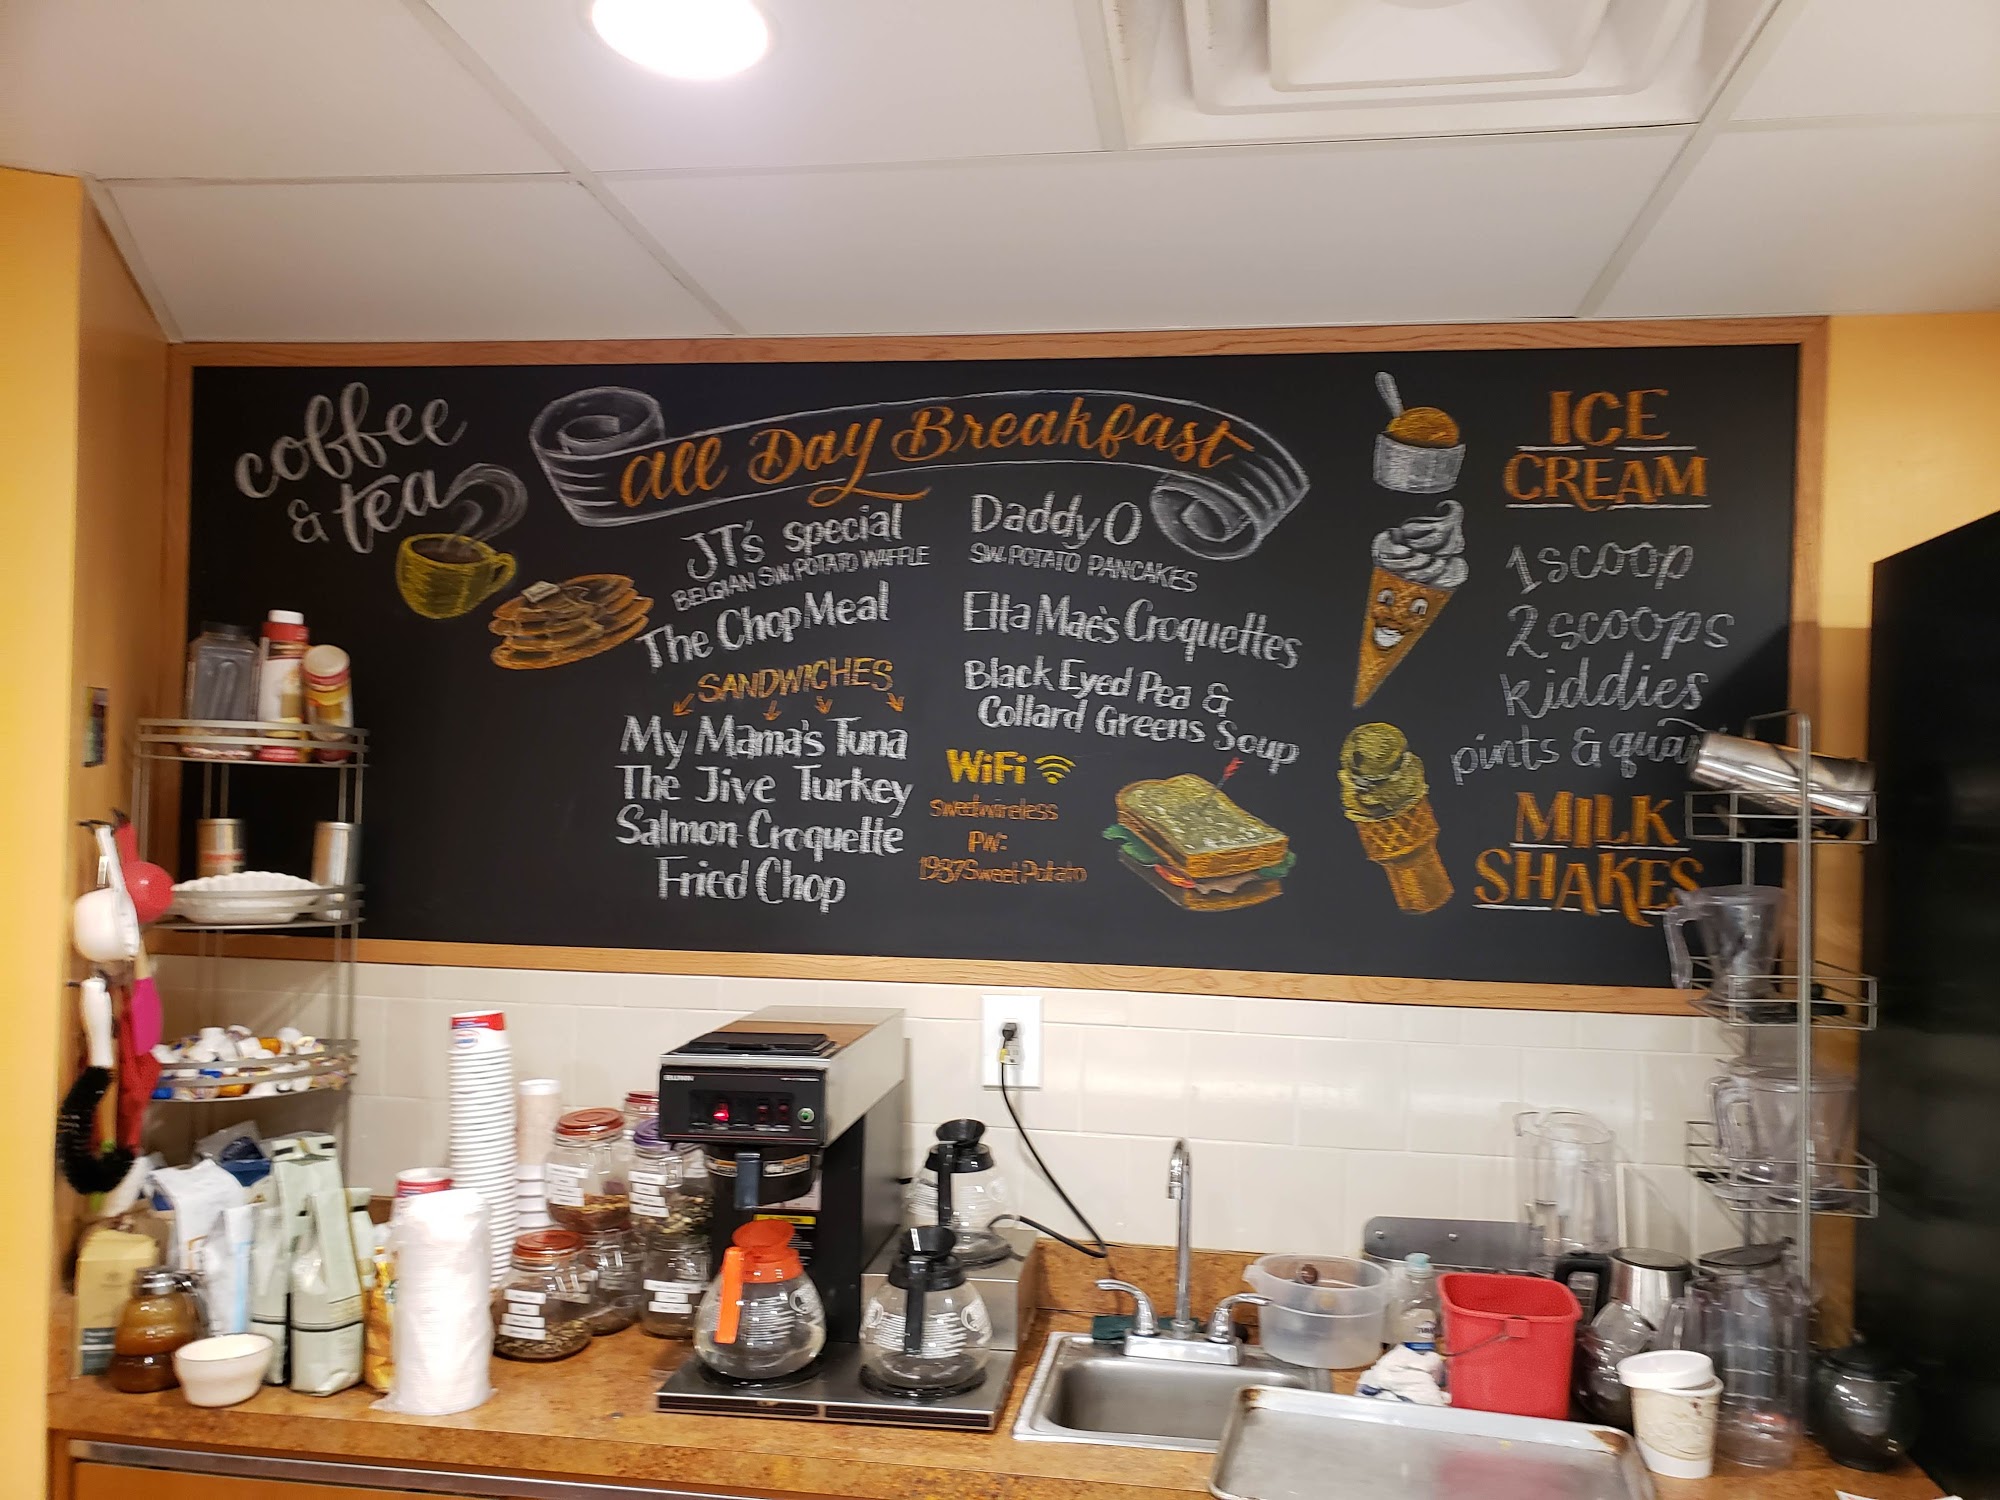 coffee
& tea
All Day Breakfast
JT's special
BELGIAN SW. POTATO WAFFLE
The Chop Meal
SANDWICHES
My Mama's Tuna
The Jive Turkey
Salmon Croquette
Fried Chop
Daddy O
SW. POTATO PANCAKES
Etta Mae's Croquettes
Black Eyed Pea &
Collard Greens Soup
WiFi
sweetwireless
PW:
1987SweetPotato
ICE
CREAM
1 scoop
2 scoops
kiddies
pints &
MILK
SHAKES
BUNN